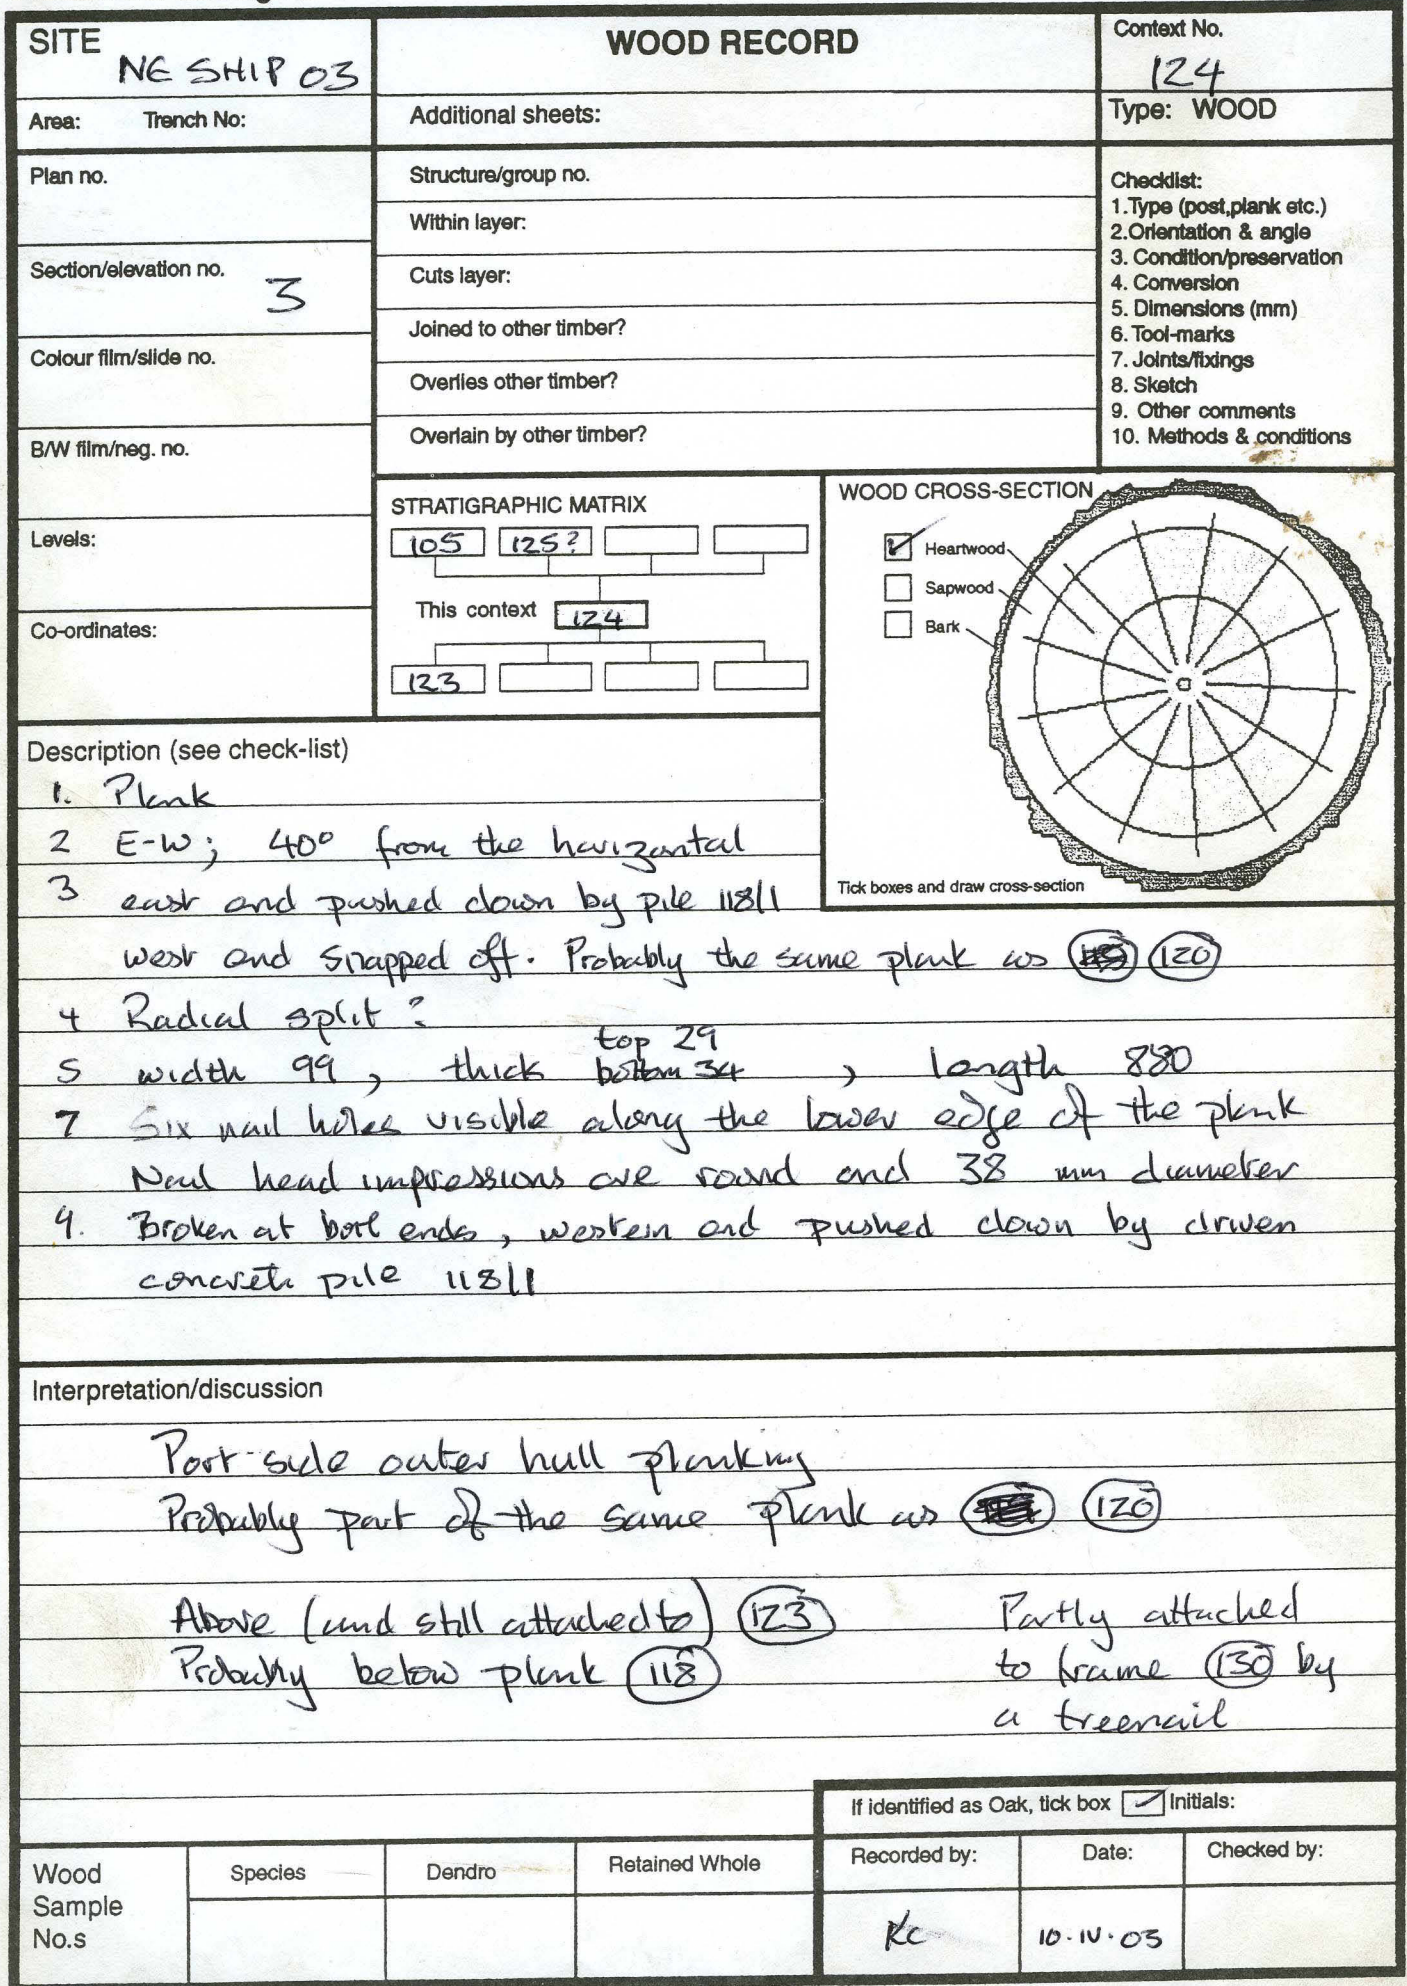 SITE
NE SHIP 03
WOOD RECORD
Context No.
124
Area: Trench No:
Additional sheets:
Type: WOOD
Plan no.
Structure/group no.
Within layer:
Section/elevation no.
3
Cuts layer:
Joined to other timber?
Colour film/slide no.
Overlies other timber?
B/W film/neg. no.
Overlain by other timber?
Checklist:
1.Type (post,plank etc.)
2.Orientation & angle
3. Condition/preservation
4. Conversion
5. Dimensions (mm)
6. Tool-marks
7. Joints/fixings
8. Sketch
9. Other comments
10. Methods & conditions
Levels:
Co-ordinates:
STRATIGRAPHIC MATRIX
105 125?
This context 124
123
WOOD CROSS-SECTION
Heartwood
Sapwood
Bark
Tick boxes and draw cross-section
Description (see check-list)
1. Plank
2 E-W; 40° from the horizontal
3 east end pushed down by pile 118/1
west end snapped off. Probably the same plank as 120
4 Radial split?
top 29
5 width 99, thick bottom 34, length 880
7 Six nail holes visible along the lower edge of the plank
Nail head impressions are round and 38 mm diameter
9. Broken at both ends, western end pushed down by driven
concrete pile 118/1
Interpretation/discussion
Port side outer hull planking
Probably part of the same plank as 120
Above (and still attached to) 123
Probably below plank 118
Partly attached
to frame 130 by
a treenail
If identified as Oak, tick box Initials:
Wood
Sample
No.s
Species
Dendro
Retained Whole
Recorded by:
KC
Date:
10.IV.03
Checked by: